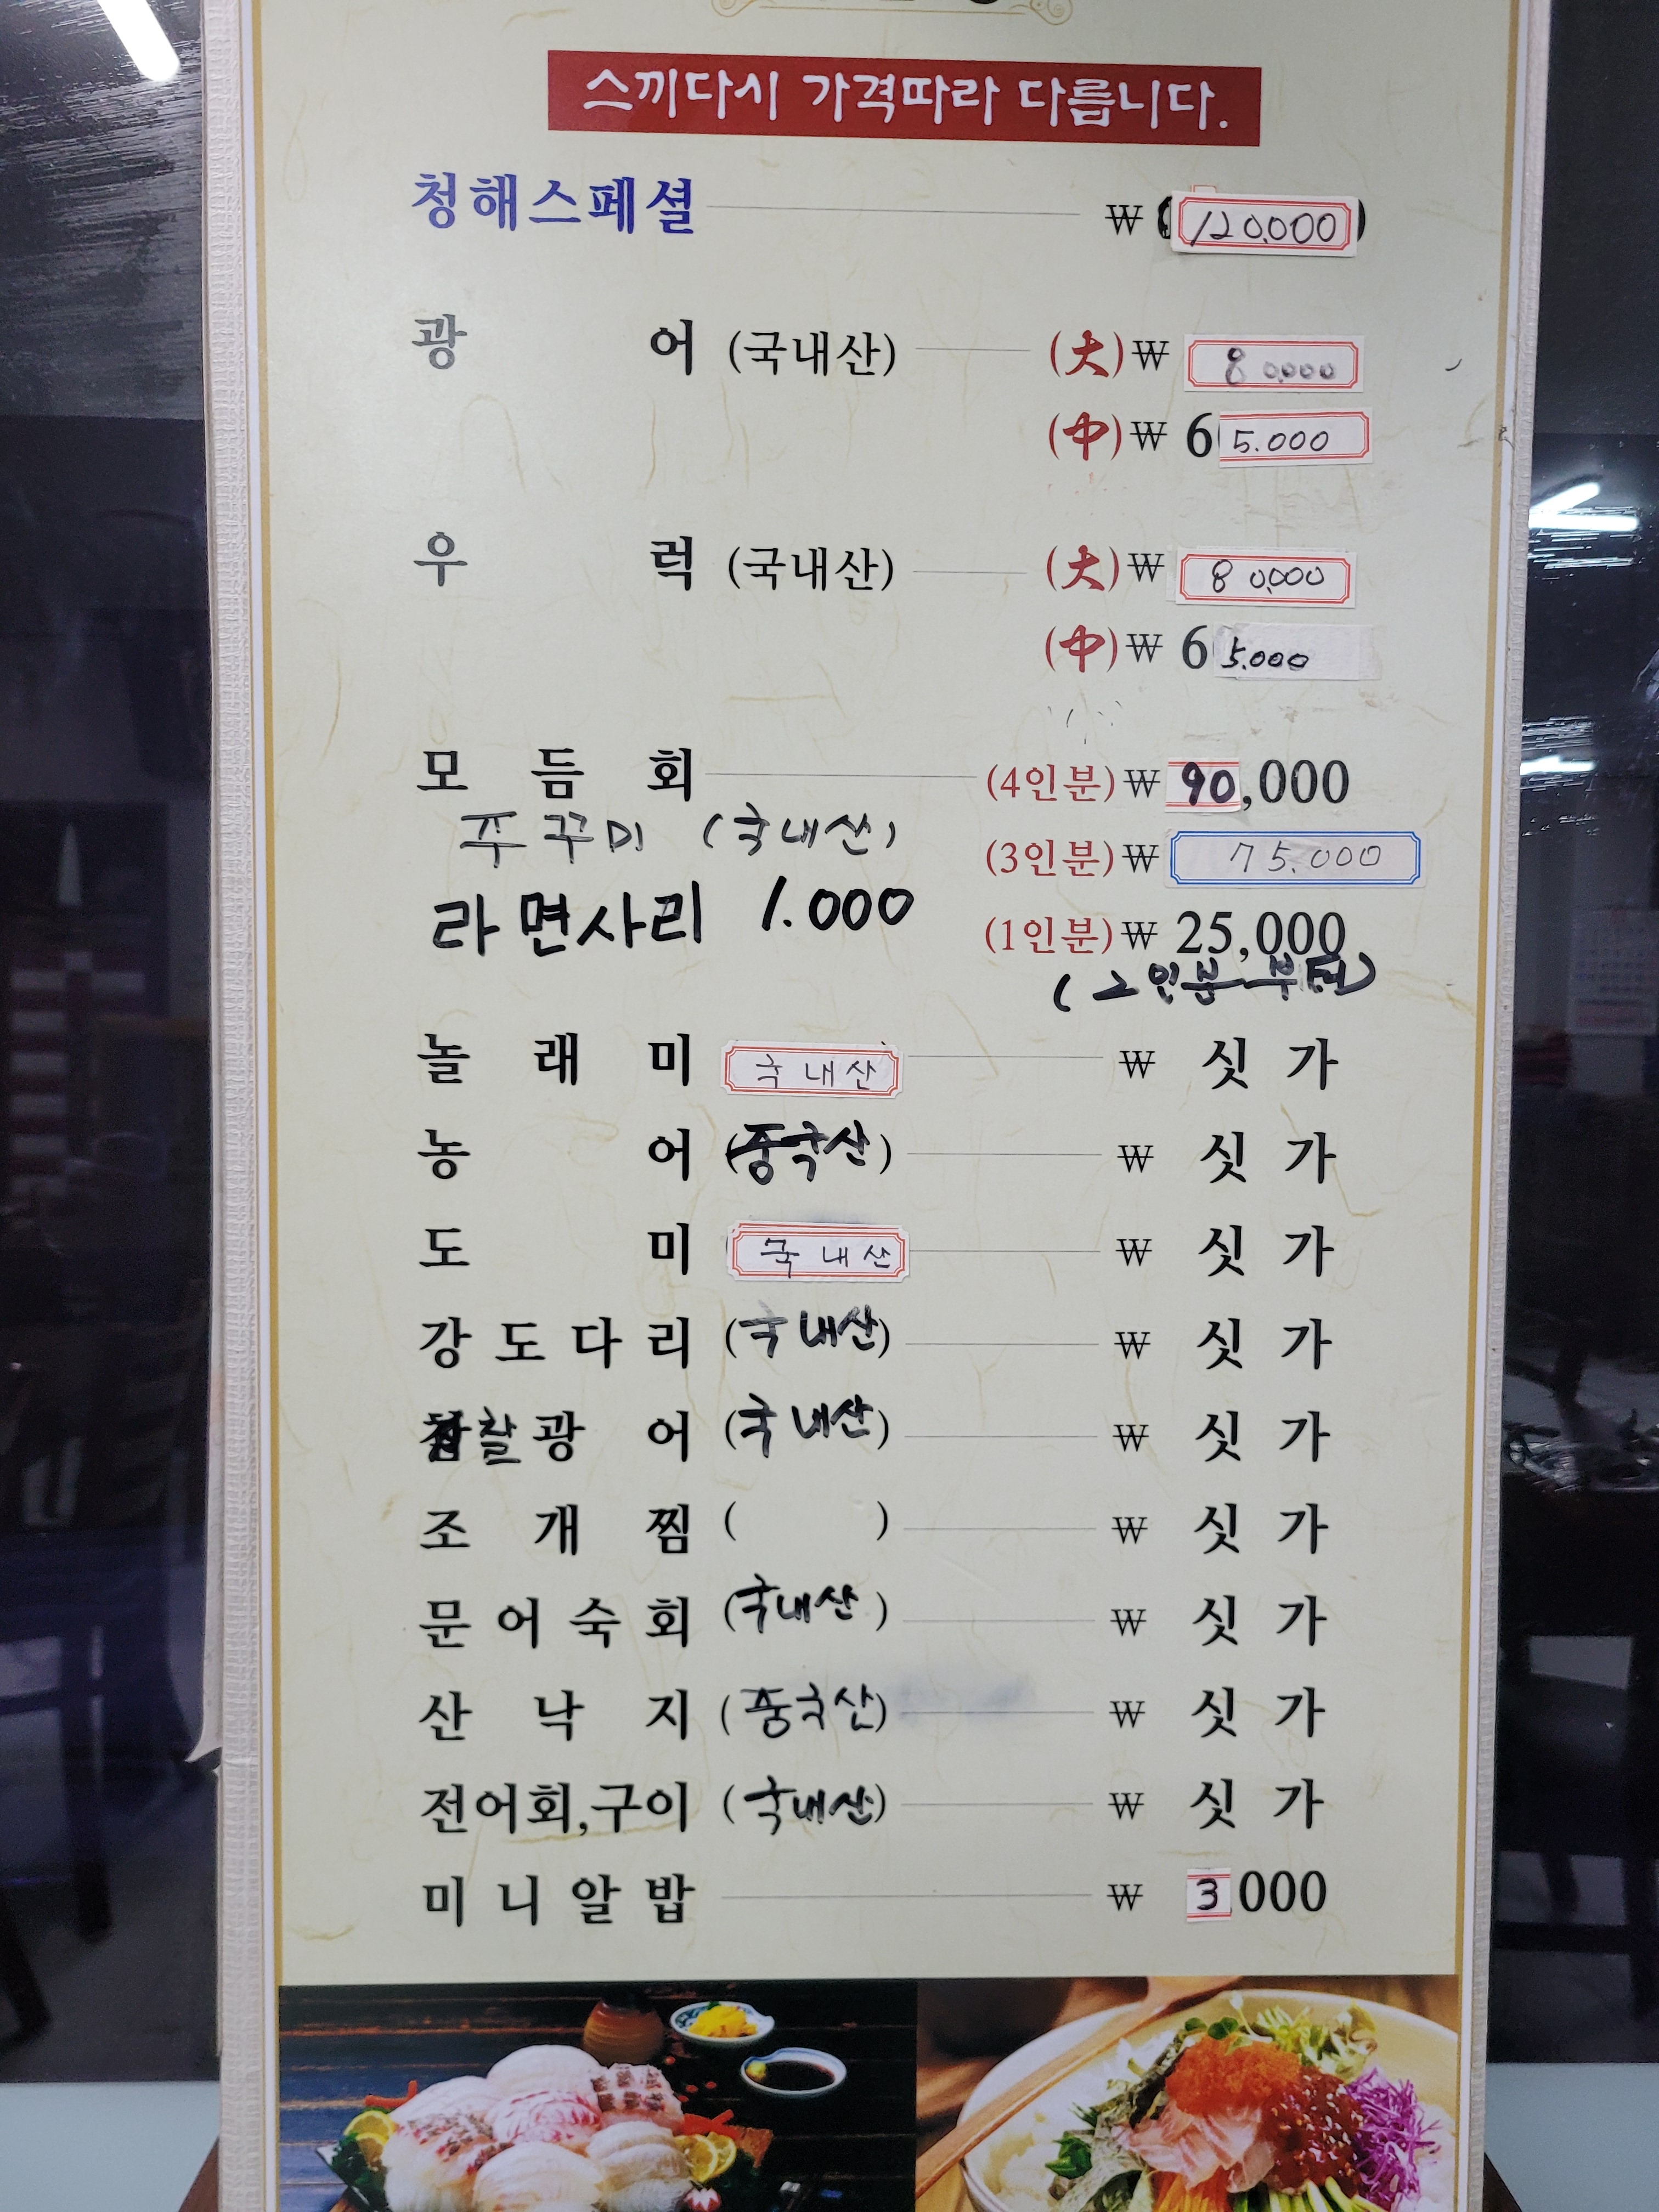 스끼다시 가격따라 다릅니다.
청해스페셜 ₩ 120,000
광어 (국내산) (大) ₩ 80,000
(中) ₩ 65.000
우럭 (국내산) (大) ₩ 80,000
(中) ₩ 65.000
모듬회 (4인분) ₩ 90,000
쭈꾸미 (국내산) (3인분) ₩ 75.000
라면사리 1.000 (1인분) ₩ 25,000
(2인분 부터)
놀래미 국내산 ₩ 싯가
농어 (중국산) ₩ 싯가
도미 국내산 ₩ 싯가
강도다리 (국내산) ₩ 싯가
찰광어 (국내산) ₩ 싯가
조개찜 ( ) ₩ 싯가
문어숙회 (국내산) ₩ 싯가
산낙지 (중국산) ₩ 싯가
전어회,구이 (국내산) ₩ 싯가
미니알밥 ₩ 3,000